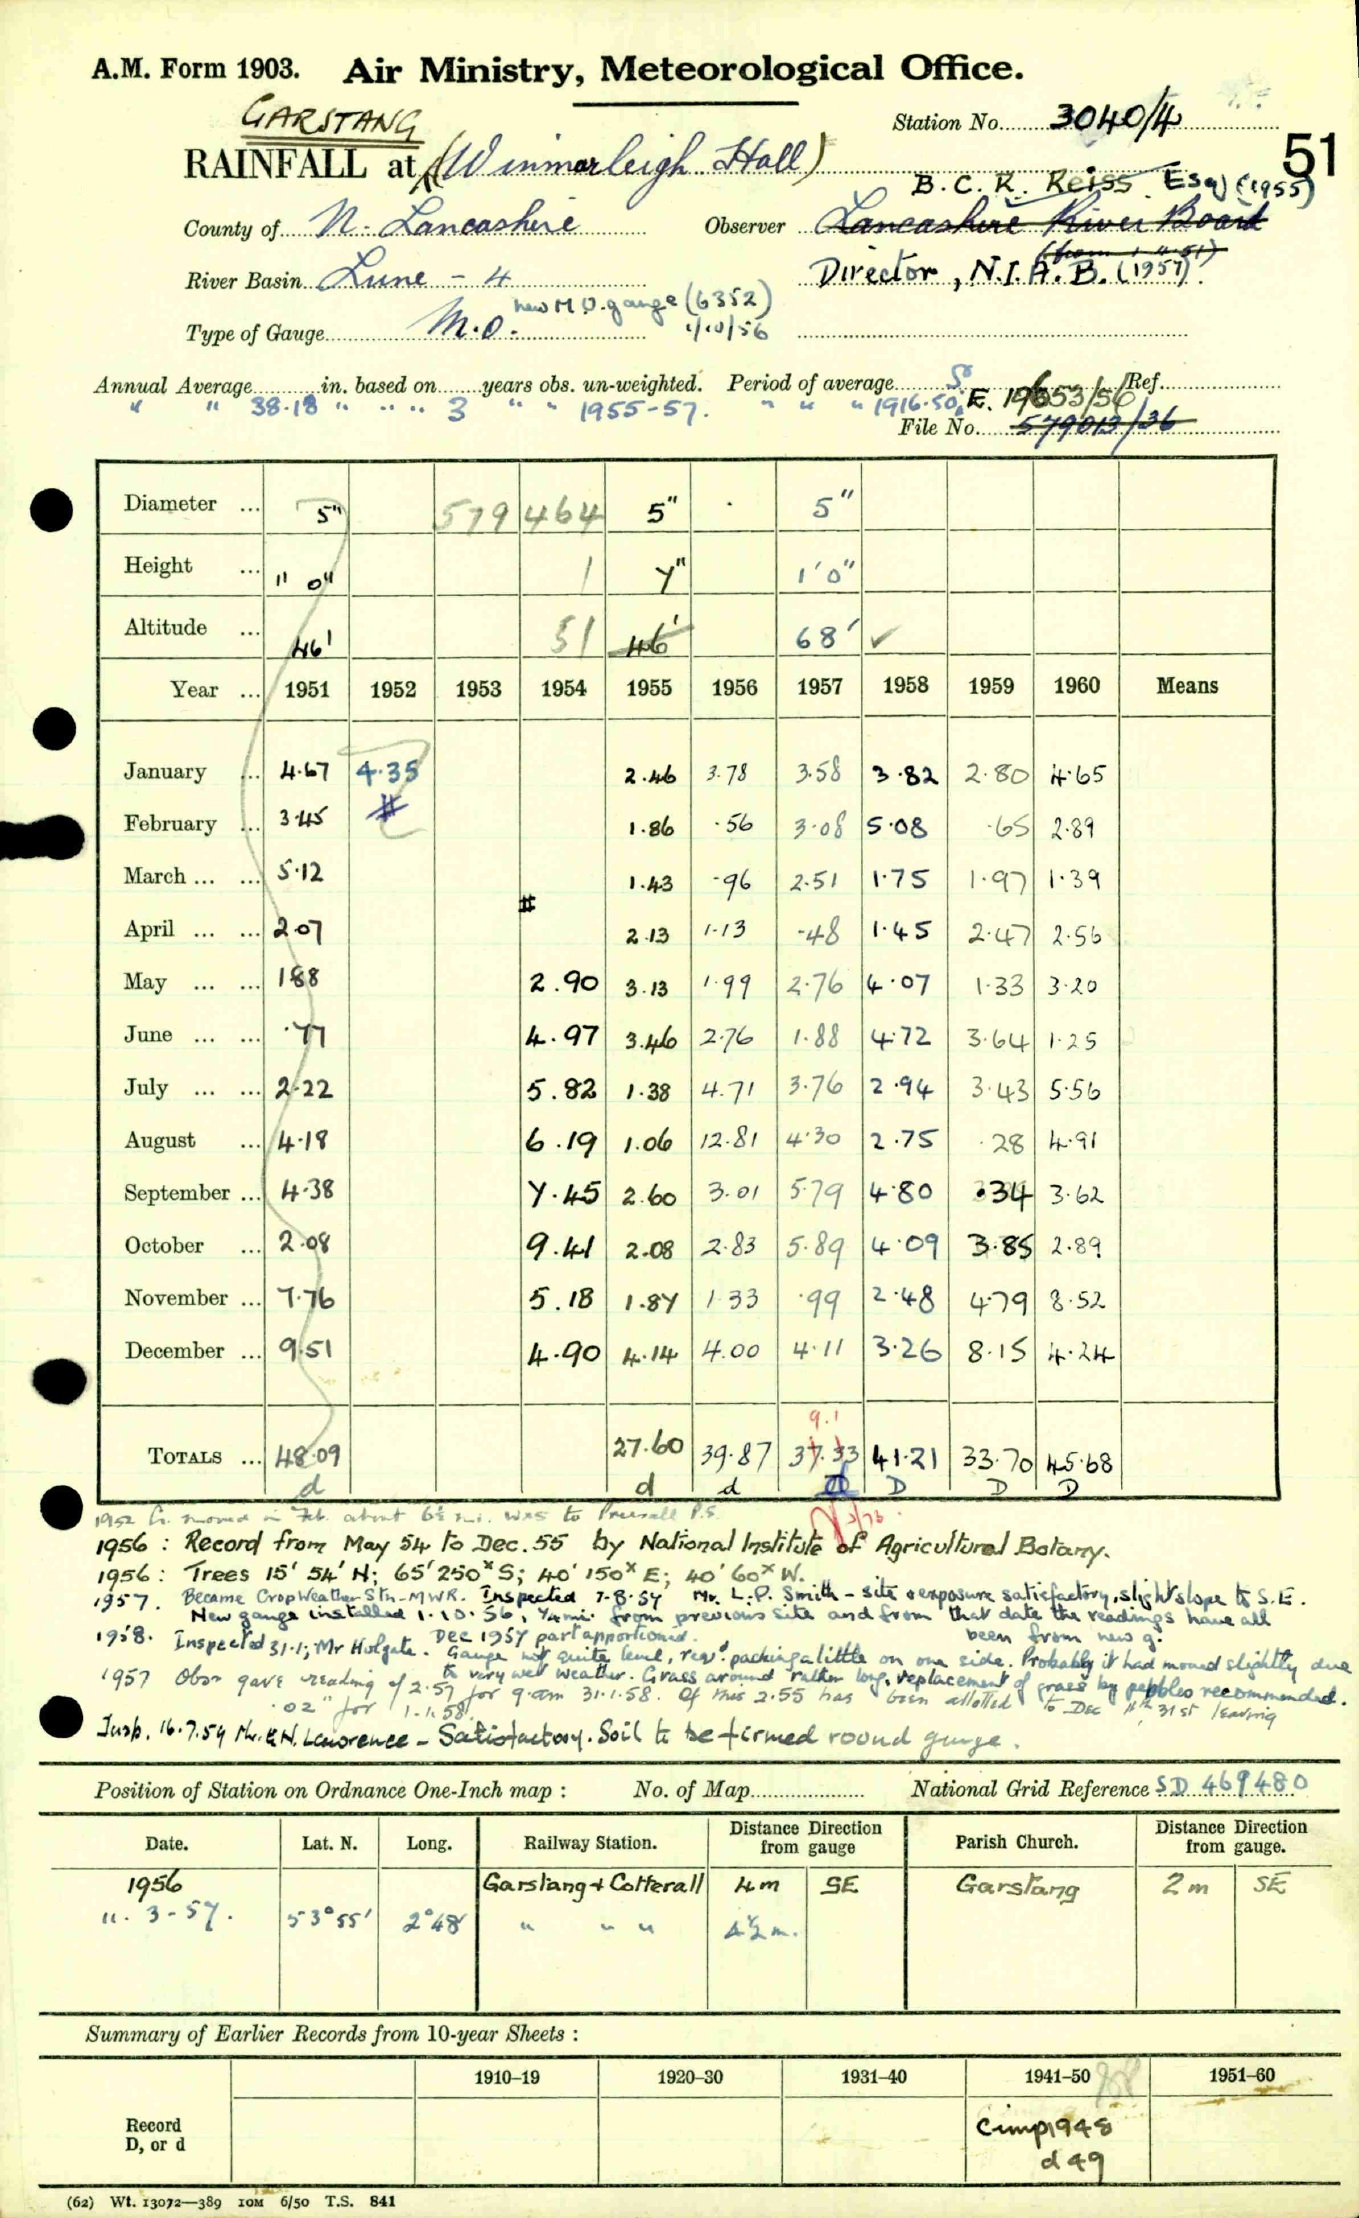 A.M. Form 1903. Air Ministry, Meteorological Office.
GARSTANG
Station No. 3040/4
51
RAINFALL at (Winmarleigh Hall)
B.C.R. Reiss Esq (1955)
County of N. Lancashire Observer Lancashire River Board
(from 1.4.51)
River Basin Lune - 4 Director, N.I.A.B. (1957)
new M.O. gauge (6352)
Type of Gauge M.O. 1/10/56
Annual Average in. based on years obs. un-weighted. Period of average Ref.
" " 38.18 " " " " 3 " " 1955-57. " " " 1916-50
File No. 579013/36
Diameter ... 5" 579 464 5" 5"
Height ... 1' 0" 1 7" 1'0"
Altitude ... 46' 51 46' 68' ✓
Year ... 1951 1952 1953 1954 1955 1956 1957 1958 1959 1960 Means
January ... 4.67 4.35 2.46 3.78 3.58 3.82 2.80 4.65
February ... 3.45 # 1.86 .56 3.08 5.08 .65 2.89
March ... ... 5.12 1.43 .96 2.51 1.75 1.97 1.39
#
April ... ... 2.07 2.13 1.13 .48 1.45 2.47 2.56
May ... ... 1.88 2.90 3.13 1.99 2.76 4.07 1.33 3.20
June ... ... .77 4.97 3.46 2.76 1.88 4.72 3.64 1.25
July ... ... 2.22 5.82 1.38 4.71 3.76 2.94 3.43 5.56
August ... 4.18 6.19 1.06 12.81 4.30 2.75 .28 4.91
September ... 4.38 7.45 2.60 3.01 5.79 4.80 .34 3.62
October ... 2.08 9.41 2.08 2.83 5.89 4.09 3.85 2.89
November ... 7.76 5.18 1.87 1.33 .99 2.48 4.79 8.52
December ... 9.51 4.90 4.14 4.00 4.11 3.26 8.15 4.24
9.1
TOTALS ... 48.09 27.60 39.87 37.33 41.21 33.70 45.68
d d d d D D D
1952 G. moved in Feb. about 6½ mi. to Preesall P.S.
1956 : Record from May 54 to Dec. 55 by National Institute of Agricultural Botany.
1956 : Trees 15' 54' N; 65' 250x S; 40' 150x E; 40' 60x W.
1957. Became Crop Weather Stn - MWR. Inspected 7-8-57 Mr. L.P. Smith - site & exposure satisfactory, slight slope to S.E.
New gauge installed 1.10.56, ¼ mi. from previous site and from that date the readings have all
been from new g.
Dec 1957 part apportioned.
1958. Inspected 31.1; Mr Holgate. Gauge not quite level, req. packing a little on one side. Probably it had moved slightly due
to very wet weather. Grass around rather long, replacement of grass by pebbles recommended.
1957 Obsr gave reading of 2.57 for 9am 31.1.58. Of this 2.55 has been allotted to Dec 31st leaving
.02" for 1.1.58.
Insp. 16.7.59 Mr. Lawrence - Satisfactory. Soil to be firmed round gauge.
Position of Station on Ordnance One-Inch map : No. of Map National Grid Reference SD 469480
Date. Lat. N. Long. Railway Station. Distance from gauge Direction Parish Church. Distance from gauge. Direction
1956 Garstang & Catterall 4m SE Garstang 2m SE
11. 3-57. 53°55' 2°48' " " " 4½m.
Summary of Earlier Records from 10-year Sheets :
1910–19 1920–30 1931–40 1941–50 1951–60
Record
D, or d
Cimp 1948
d 49
(62) Wt. 13072—389 10M 6/50 T.S. 841